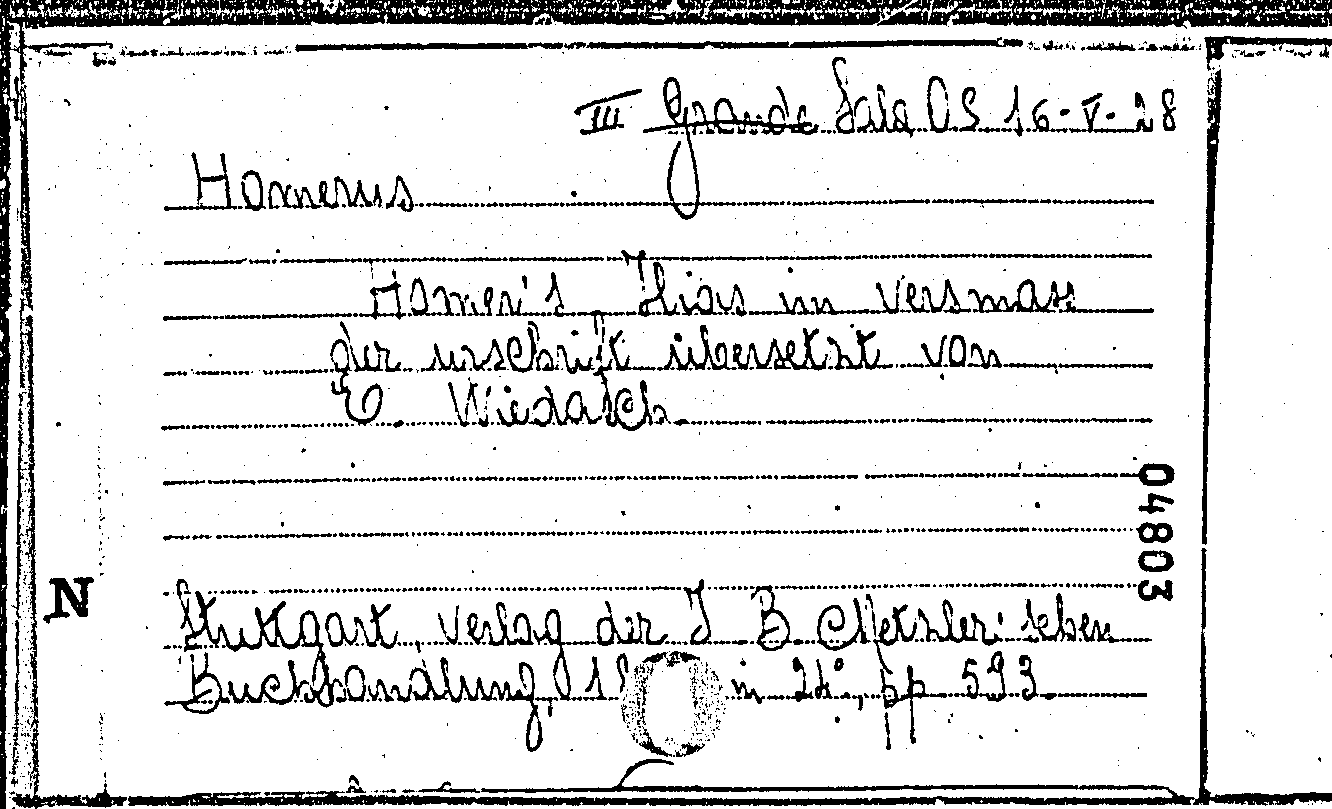 III Grande Sala OS 16-V-28
Homerus
Homer's Ilias im versmass
der urschrift übersetzt von
E. Wiedasch.
04803
N
Stuttgart, verlag der J. B. Metzler'schen
Buchhandlung, 18 in 24°, pp 593.